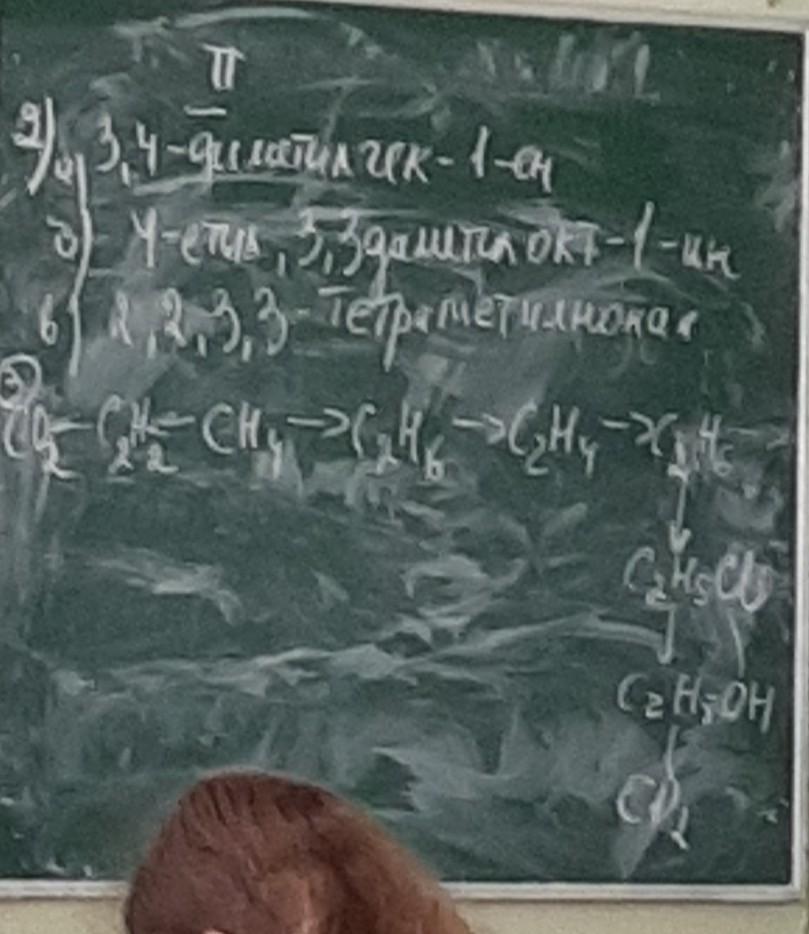 II
2) а) 3,4-диметил гек-1-ен
б) 4-етил, 3,3 диметил окт-1-ин
в) 2,2,3,3-тетраметилнонан
3)
CO₂ ← C₂H₂ ← CH₄ → C₂H₆ → C₂H₄ → C₂H₆
↓
C₂H₅Cl
↓
C₂H₅OH
↓
CO₂